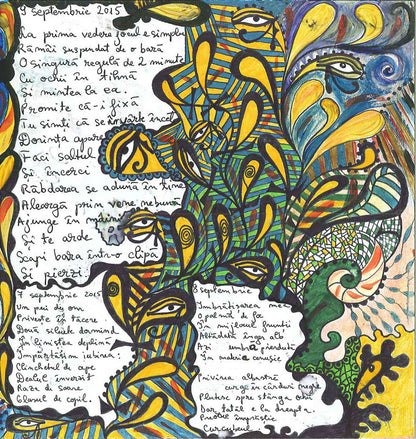 9 septembrie 2015
La prima vedere jocul e simplu
Rămâi suspendat de o bară
O singură regulă de 2 minute
Cu ochii în tihnă
Și mintea la ea.
Promite că-i fixă
Tu simți că se învârte încet
Dorința apare
Faci saltul
Și încerci
Răbdarea se adună în tine
Aleargă prin vene nebună
Ajunge în mâini
Și te arde
Scapi bara într-o clipă
Și pierzi.
7 septembrie 2015
Un pui de om
Privește în tăcere
Două siluete dormind
În liniștea deplină
Împărtășim iubirea:
Clinchetul de ape
Dealul înverzit
Raze de soare
Glasul de copil.
8 septembrie
Îmbrățișarea mea
O palmă de fa
În mijlocul frunții
Alintată înger alb
Azi umbră pierdută
În materie cenușie
Privirea albastră
curge în cărduri negre
Plutire spre stânga
Dar tatăl e la dreapta.
Curcubeul